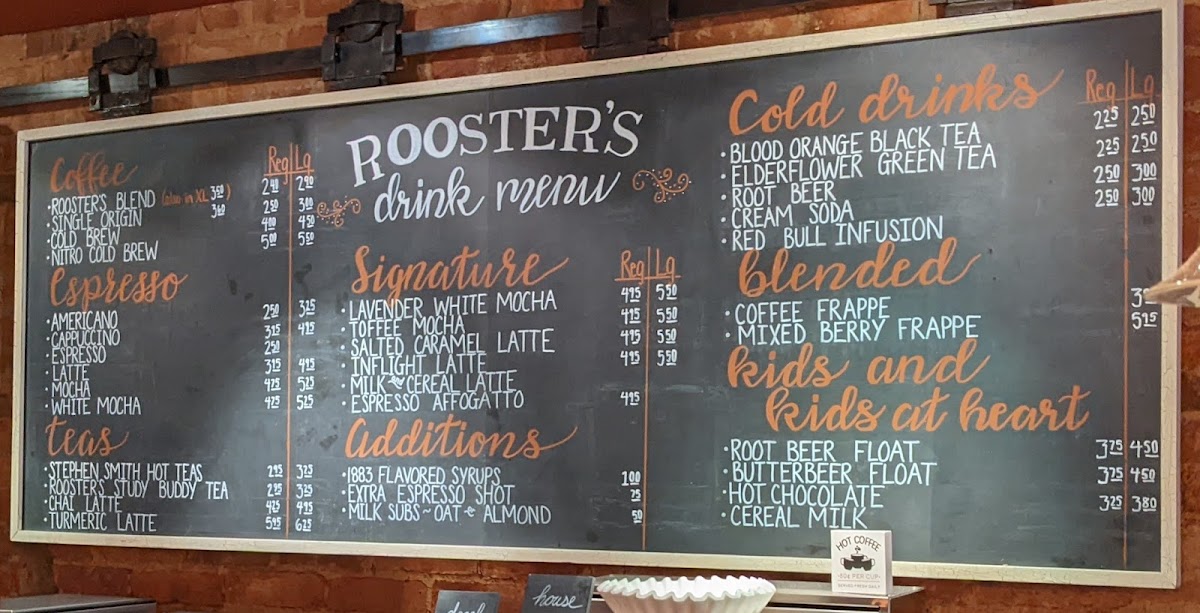 Coffee Reg Lg
·ROOSTER'S BLEND (also in XL 3 50) 2 40 2 90
·SINGLE ORIGIN 3 60 2 50 3 00
·COLD BREW 4 00 4 50
·NITRO COLD BREW 5 00 5 50
Espresso
·AMERICANO 2 50 3 25
·CAPPUCCINO 3 75 4 25
·ESPRESSO 2 50
·LATTE 3 75 4 25
·MOCHA 4 25 5 25
·WHITE MOCHA 4 25 5 25
teas
·STEPHEN SMITH HOT TEAS 2 95 3 25
·ROOSTERS STUDY BUDDY TEA 2 95 3 25
·CHAI LATTE 4 25 4 95
·TURMERIC LATTE 5 95 6 25
ROOSTER'S
drink menu
Signature Reg Lg
·LAVENDER WHITE MOCHA 4 95 5 50
·TOFFEE MOCHA 4 95 5 50
·SALTED CARAMEL LATTE 4 95 5 50
·INFLIGHT LATTE 4 95 5 50
·MILK & CEREAL LATTE
·ESPRESSO AFFOGATTO 4 95
additions
·1883 FLAVORED SYRUPS 1 00
·EXTRA ESPRESSO SHOT 75
·MILK SUBS~OAT & ALMOND 50
Cold drinks Reg Lg
·BLOOD ORANGE BLACK TEA 2 25 2 50
·ELDERFLOWER GREEN TEA 2 25 2 50
·ROOT BEER 2 50 3 00
·CREAM SODA 2 50 3 00
·RED BULL INFUSION
blended
·COFFEE FRAPPE
·MIXED BERRY FRAPPE 5 75
kids and
kids at heart
·ROOT BEER FLOAT 3 75 4 50
·BUTTERBEER FLOAT 3 75 4 50
·HOT CHOCOLATE 3 25 3 80
·CEREAL MILK
HOT COFFEE
50¢ PER CUP
SERVED FRESH DAILY
house